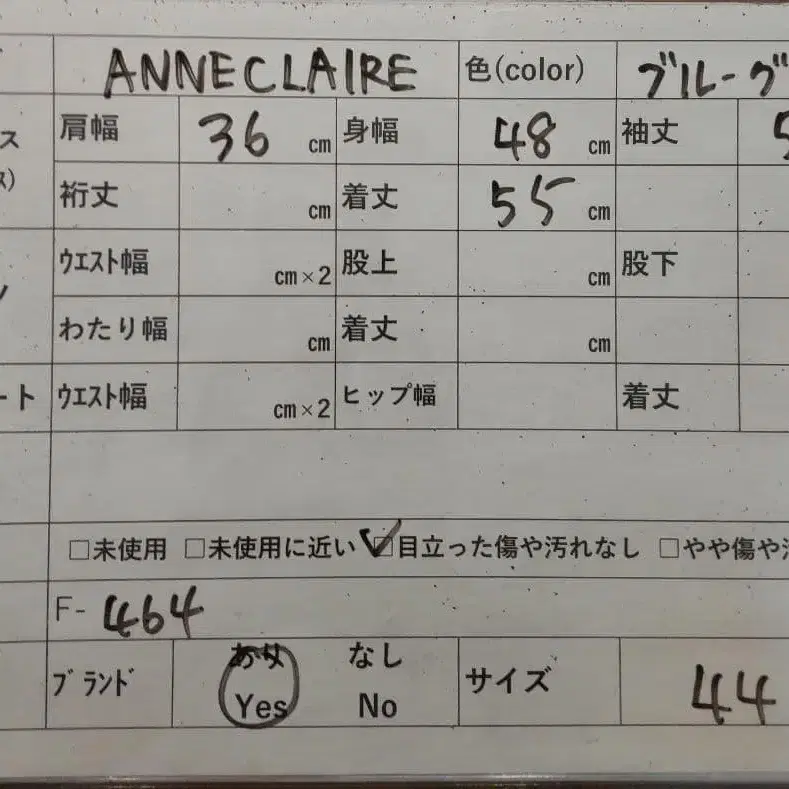 ANNECLAIRE 色(color) ブルーグ
ス 肩幅 36 cm 身幅 48 cm 袖丈 5
ス) 裄丈 cm 着丈 55 cm
ウエスト幅 cm×2 股上 cm 股下
わたり幅 cm 着丈 cm
ート ウエスト幅 cm×2 ヒップ幅 着丈
□未使用 □未使用に近い ☑目立った傷や汚れなし □やや傷や汚
F- 464
ブランド あり Yes なし No サイズ 44